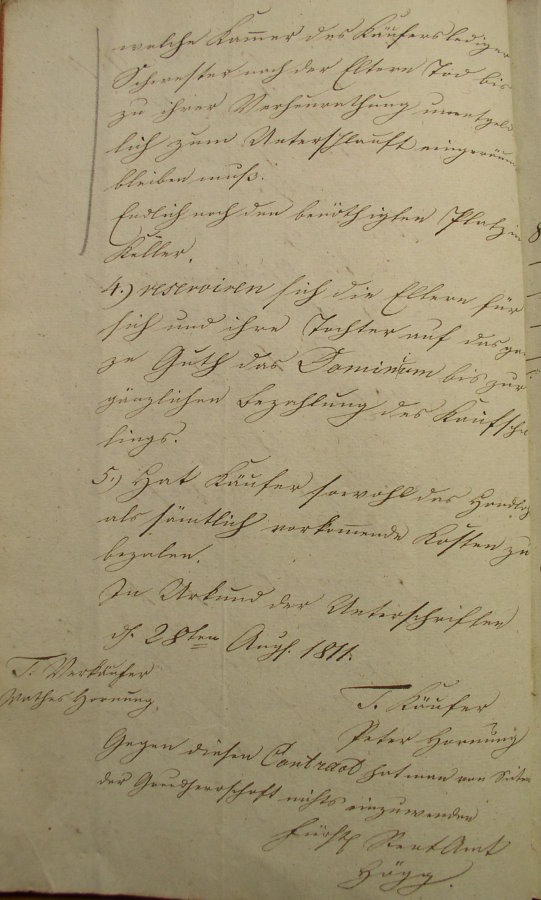 welche Kammer des Käufers lediger
Schwester nach der Eltern Tod bis
zu ihrer Verheurathung unentgeld
lich zum Unterschlauft eingeräum
bleiben muß.
Endlich noch den benöthigten Platz im
Keller.
4.) reserviren sich die Eltern für
sich und ihre Tochter auf das gan
ze Guth das Dominium bis zur
gänzlichen Bezahlung des Kaufschil
lings.
5.) Hat Käufer sowohl das Handlohn
als sämtlich vorkommende Kosten zu
bezalen.
In Urkund der Unterschriften
d. 28ten Augs. 1811.
T. Verkäufer
Mathes Hornung.
T. Käufer
Peter Hornung
Gegen diesen Contract hat man von Seiten
der Grundherrschaft nichts einzuwenden
Fürstl Rent Amt
Högg.